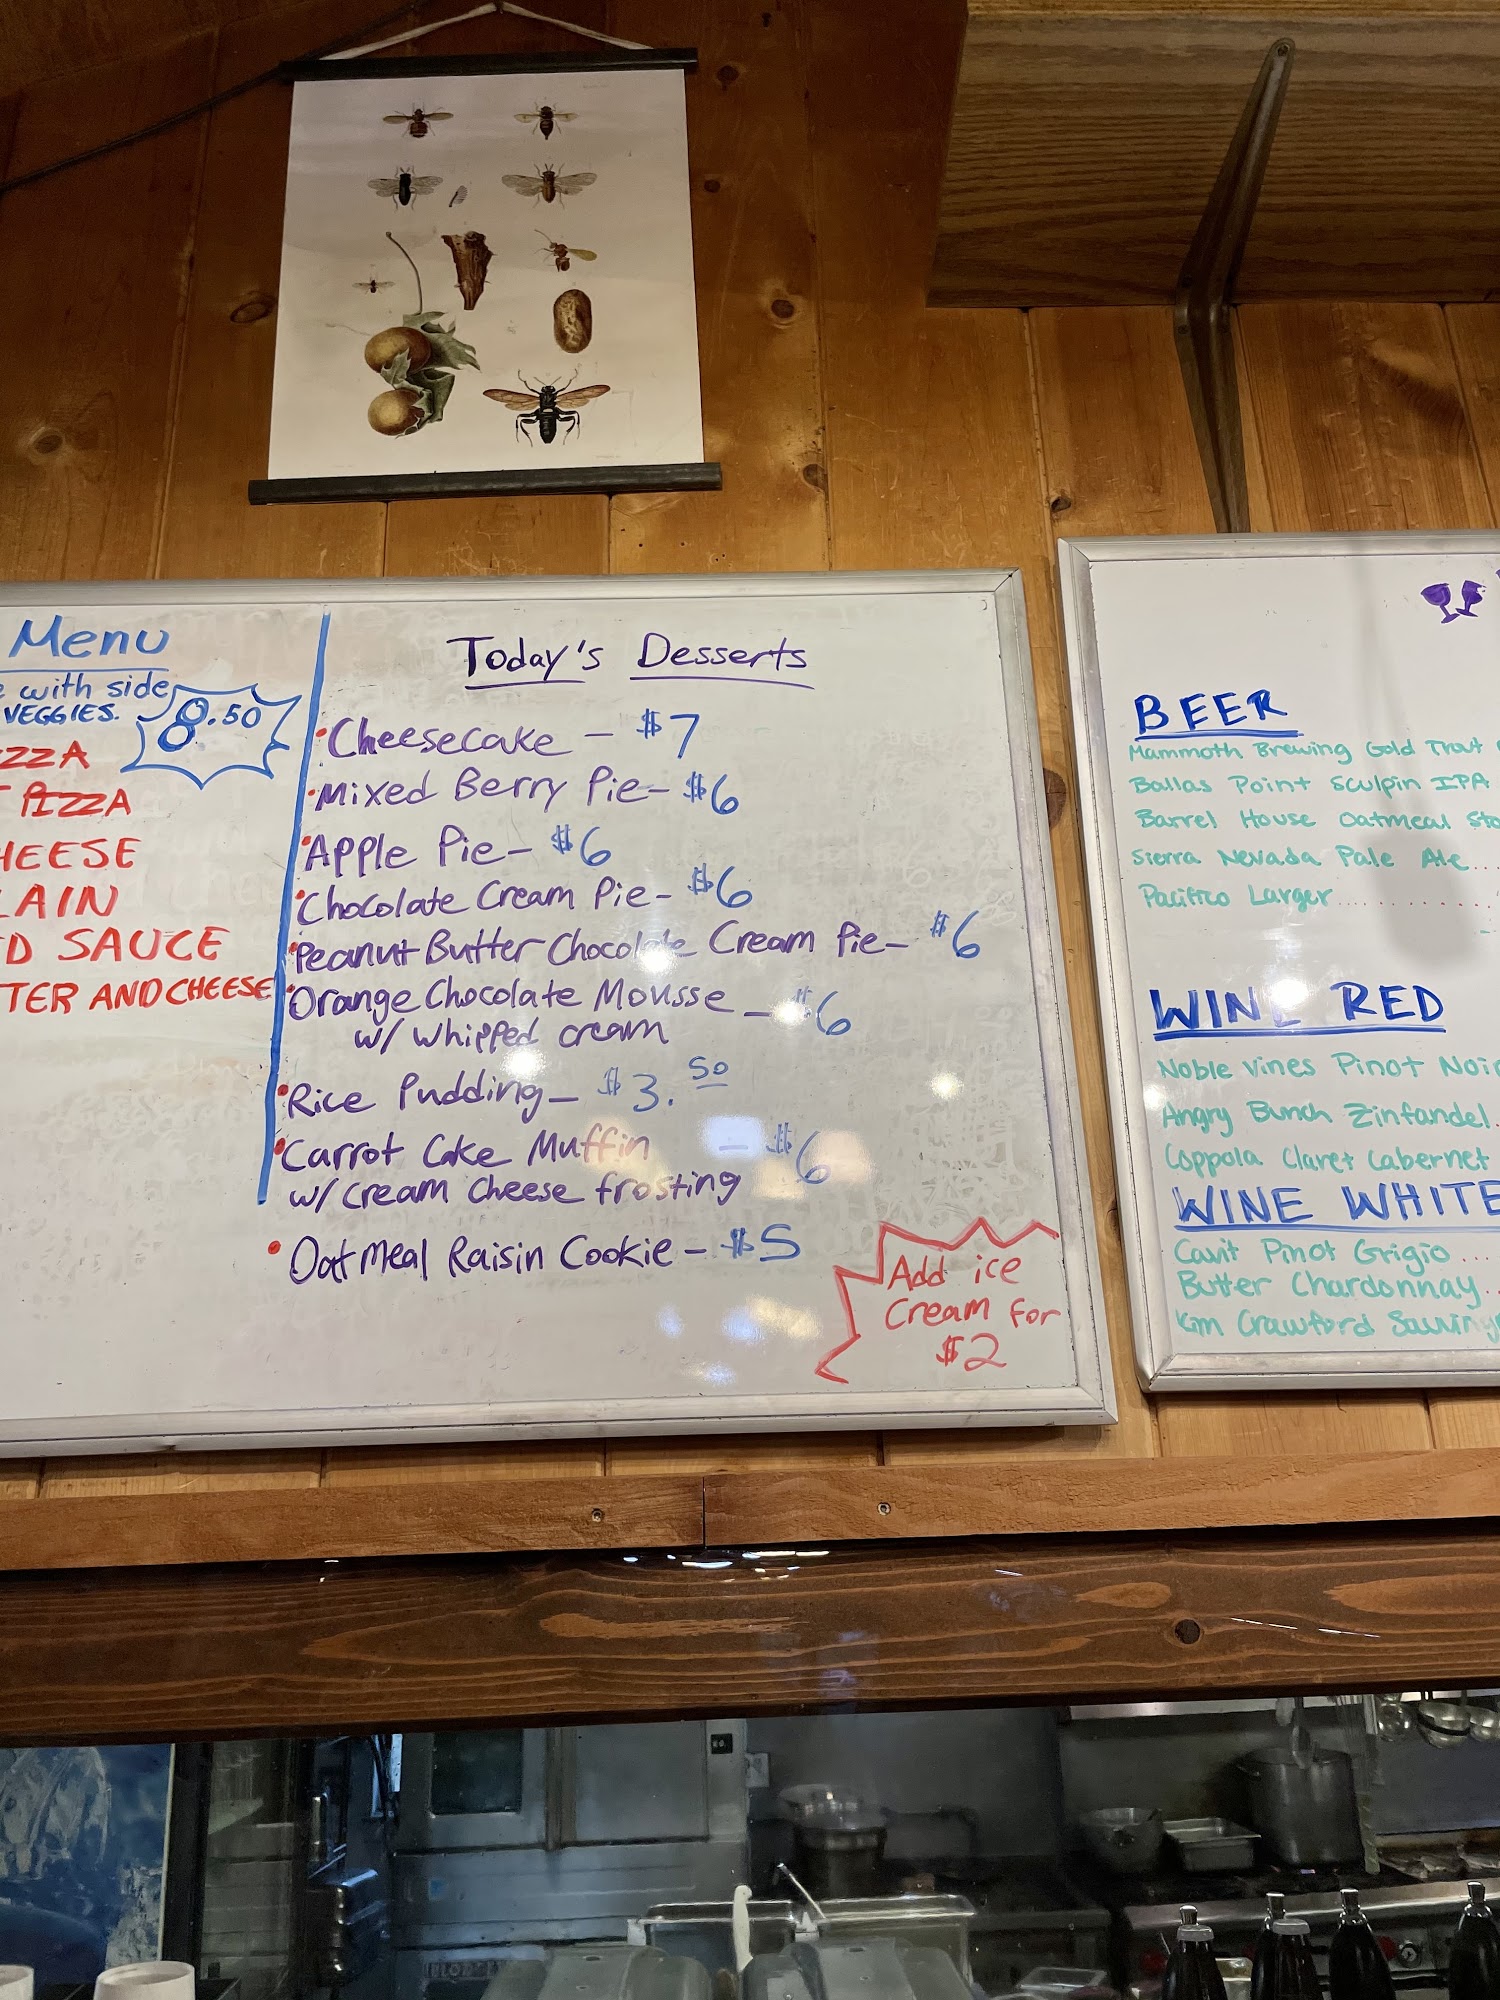 Menu
with side
VEGGIES.
8.50
PIZZA
SAUCE
AND CHEESE
Today's Desserts
•Cheesecake – $7
•Mixed Berry Pie– $6
•Apple Pie– $6
•Chocolate Cream Pie– $6
•Peanut Butter Chocolate Cream Pie– $6
•Orange Chocolate Mousse – $6
w/ whipped cream
•Rice Pudding– $3.50
•Carrot Cake Muffin – $6
w/ Cream Cheese frosting
•Oatmeal Raisin Cookie – $5
Add ice
Cream for
$2
BEER
Mammoth Brewing Gold Trout
Ballas Point Sculpin IPA
Barrel House Oatmeal Sto
Sierra Nevada Pale Ale...
Pacifico Larger..........
WINE RED
Noble Vines Pinot Noir
Angry Bunch Zinfandel.
Coppola Claret Cabernet
WINE WHITE
Cavit Pinot Grigio...
Butter Chardonnay..
Kim Crawford Sauvig